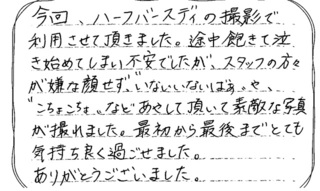 今回、ハーフバースディの撮影で
利用させて頂きました。途中飽きて泣
き始めてしまい不安でしたが、スタッフの方々
が嫌な顔せず、"いないいないばぁ"や、
"こちょこちょ"などあやして頂いて素敵な写真
が撮れました。最初から最後までとても
気持ち良く過ごせました。
ありがとうございました。